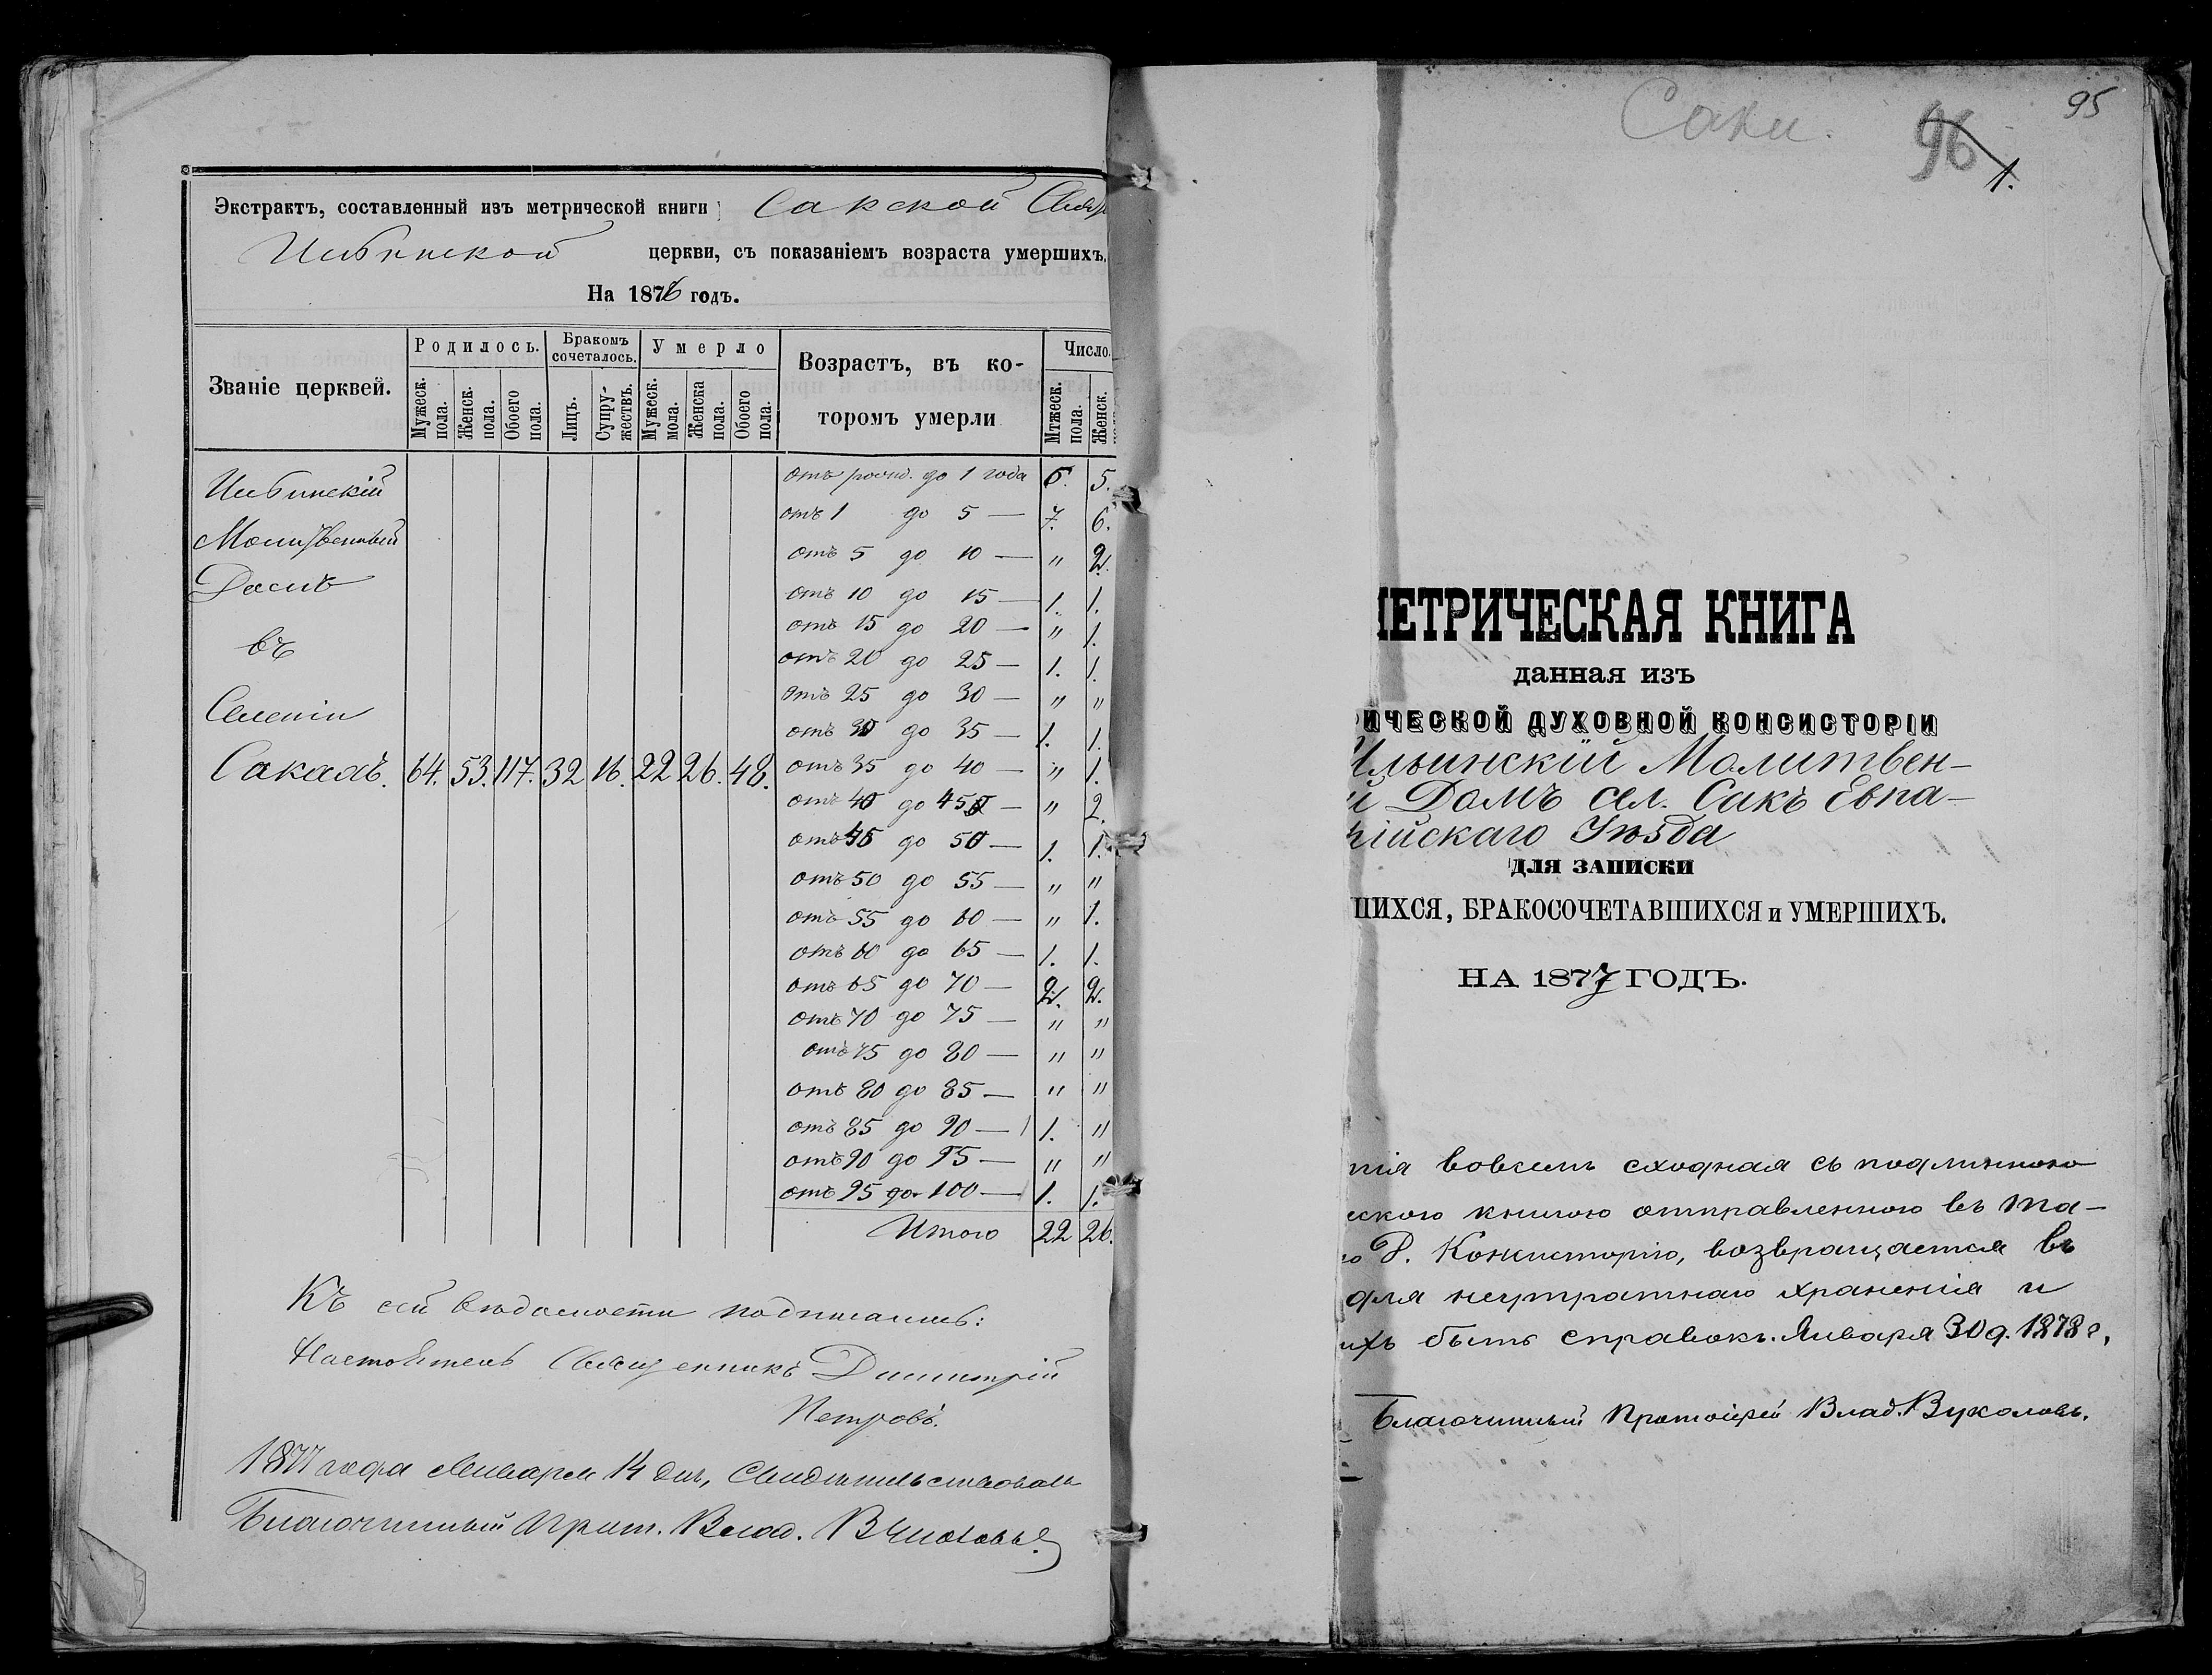 Экстрактъ, составленный изъ метрической книги Сакской
Ильинской церкви, съ показаніемъ возраста умершихъ.
На 1876 годъ.
Званіе церквей.
Родилось.
Бракомъ сочеталось.
Умерло
Возрастъ, въ ко-
торомъ умерли
Число.
Мужеск. пола.
Женск. пола.
Обоего пола.
Лицъ.
Супру-
жествъ.
Мужеск. мола.
Женска пола.
Обоего пола.
Мтжеск. пола.
Женск.
Ильинскій
Молитвенный
Домъ
въ
Селеніи
Сакахъ. 64. 53. 117. 32 16. 22 26. 48.
отъ рожд. до 1 года 6. 5.
отъ 1 до 5 — 7. 6.
отъ 5 до 10 — " 2.
отъ 10 до 15 — 1. 1.
отъ 15 до 20 — " 1.
отъ 20 до 25 — 1. 1.
отъ 25 до 30 — " "
отъ 30 до 35 — 1. 1.
отъ 35 до 40 — " 1.
отъ 40 до 45 — " 2.
отъ 45 до 50 — 1. 1.
отъ 50 до 55 — " "
отъ 55 до 60 — " 1.
отъ 60 до 65 — 1. 1.
отъ 65 до 70 — 2. 2.
отъ 70 до 75 — " "
отъ 75 до 80 — " "
отъ 80 до 85 — " "
отъ 85 до 90 — 1. "
отъ 90 до 95 — " "
отъ 95 до 100 — 1. 1.
Итого 22 26.
Къ сей вѣдомости подписались:
Настоятель Священникъ Димитрій
Петровъ.
1877 года Января 14 дня, Свидѣтельствовалъ
Благочинный Прот. Влад. Вуколовъ.
Саки.
96
1.
95
ЕТРИЧЕСКАЯ КНИГА
данная изъ
ИЧЕСКОЙ ДУХОВНОЙ КОНСИСТОРІИ
Ильинскій Молитвен-
й Домъ сел. Сакъ Евпа-
рійскаго Уѣзда
ДЛЯ ЗАПИСКИ
ШИХСЯ, БРАКОСОЧЕТАВШИХСЯ и УМЕРШИХЪ.
НА 1877 ГОДЪ.
пія вовсемъ сходная съ подлинною
скою книгою отправленною въ Та-
ю Д. Консисторію, возвращается въ
для неутратнаго храненія и
ихъ быть справокъ. Января 30 д. 1878 г.
Благочинный Протоіерей Влад. Вуколовъ.